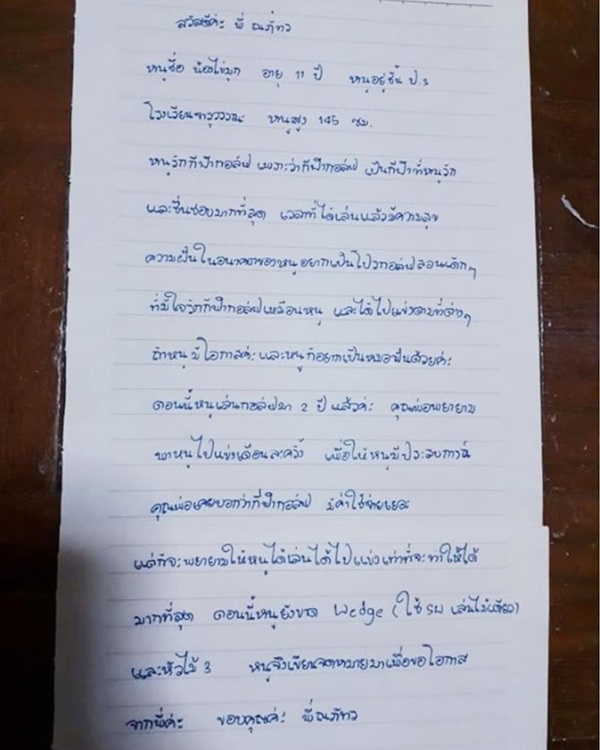 สวัสดีค่ะ พี่ ณภัทร
หนูชื่อ น้องไข่มุก อายุ 11 ปี หนูอยู่ชั้น ป.3
โรงเรียน หนูสูง 145 ซม.
หนูรักกีฬากอล์ฟ เพราะว่ากีฬากอล์ฟ เป็นกีฬาที่หนูรัก
และชื่นชอบมากที่สุด เวลาที่ได้เล่นแล้วมีความสุข
ความฝันในอนาคตของหนูอยากเป็นโปรกอล์ฟสอนเด็กๆ
ที่มีใจรักกีฬากอล์ฟเหมือนหนู และได้ไปแข่งตามที่ต่างๆ
ถ้าหนูมีโอกาสค่ะ และหนูก็อยากเป็นหมอฟันด้วยค่ะ
ตอนนี้หนูเล่นกอล์ฟมา 2 ปี แล้วค่ะ คุณพ่อพยายาม
พาหนูไปแข่งเดือนละครั้ง เพื่อให้หนูมีประสบการณ์
คุณพ่อเคยบอกว่ากีฬากอล์ฟ มีค่าใช้จ่ายเยอะ
แต่ก็จะพยายามให้หนูได้เล่นได้ไปแข่งเท่าที่จะทำให้ได้
มากที่สุด ตอนนี้หนูยังขาด Wedge (ใช้ SW เล่นไม้เดียว)
และหัวไม้ 3 หนูจึงเขียนจดหมายมาเพื่อขอโอกาส
จากพี่ค่ะ ขอบคุณค่ะ พี่ณภัทร